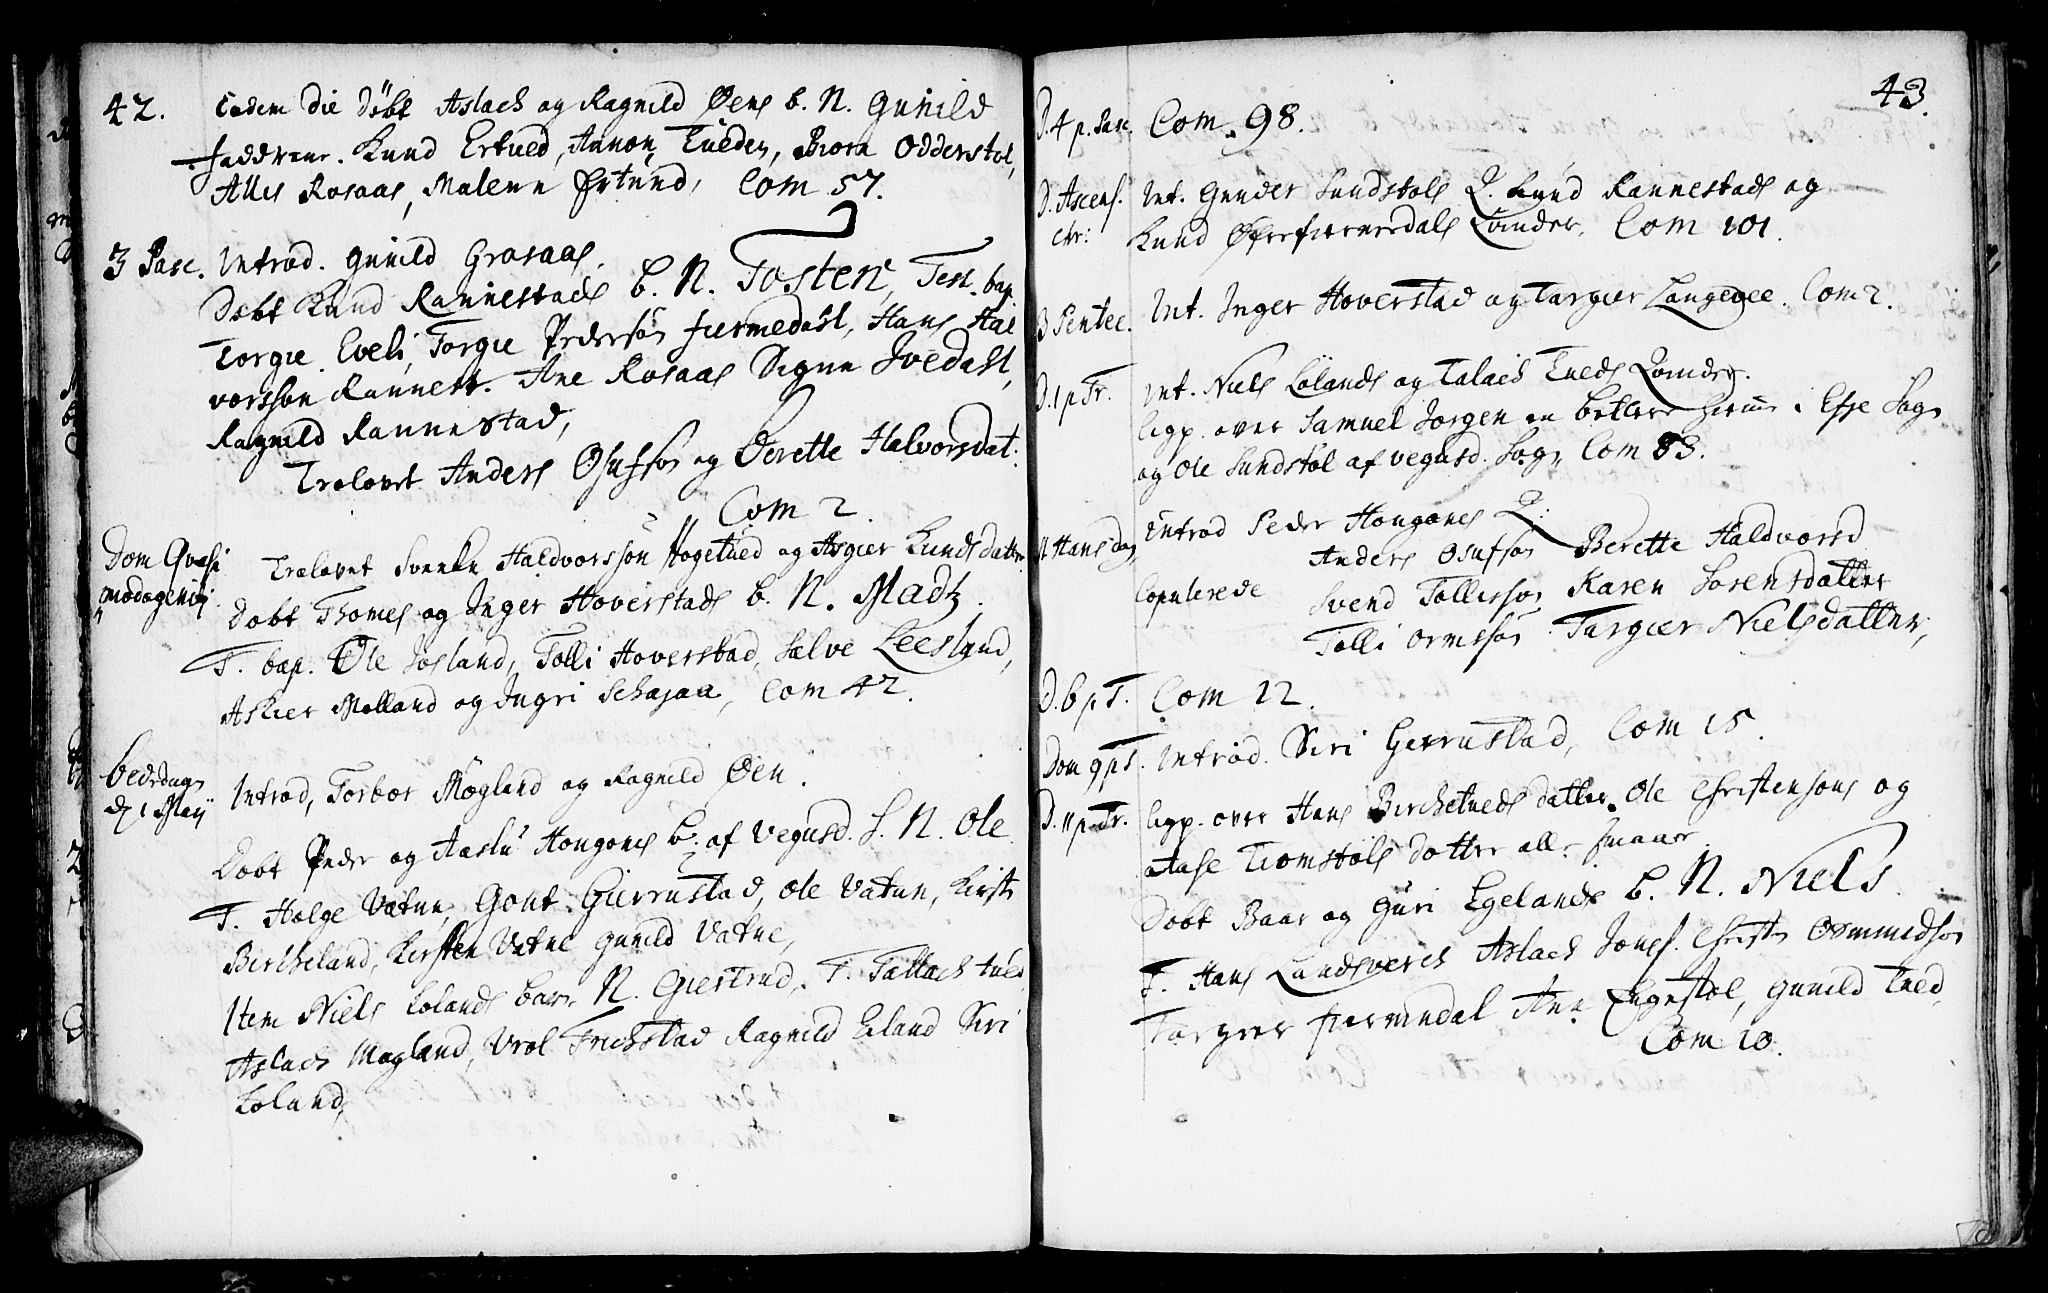 42.
Eadem die Døbt Aslach og Ragnild Øens b. N. Gunild
Faddrene. Knud Ertued, Annon Tueden, Biorn Odderstøl,
Alles Rosaas, Malene Ertued, Com 57.
3 Pasc. Introd. Gunild Grosaas.
Døbt Knud Rannestads b. N. Tosten, Test. bap.
Torgie Eveli, Torgie Pedersøn fiermedahl, Hans Hal
vorssøn Rannest. Ane Rosaas Signe Ivedahl,
Ragnild Rannestad,
Trolovet Anders Osufsøn og Berette Halvorsdat:
Com 2.
Dom Qvasi
modogeniti
Trolovet Svenke Haldvorssøn Høgetued og Asgier Knudsdatter
Døbt Thomes og Inger Hoverstads b. N. Madz.
T. bap. Ole Josland, Tolli Hoverstad, Salve Leesland,
Askier Molland og Ingri Schajaa, Com 42.
bededags
d. 1 Maij
Introd, Torbor Møgland og Ragnild Øen.
Døbt Peder og Aaslu Hongones b. af Vegusd. S. N. Ole
T. Holge Vatne, Gout Gierrustad, Ole Vatne, Kirsten
Bircheland, Kirsten Vatne Gunild Vatne,
Item Niels Lolands barn N. Giertrud. T. Tallach tued
Aslach Mogland, Vrol Trichstad Ragnild Eiland Siri
Loland,
43.
D. 4 p. Pasc. Com. 98.
D. Ascens. Chr: Int. Gunder Sundstøls Q. Knud Rannestads og
Knud Øfrefiermedals Qvinder. Com 101.
3 Pentec. Int. Inger Hoverstad og Targier Langegee. Com 2.
D. 1 p Tr. Int. Niels Lolands og Talach Tueds Qvinder.
ligp. over Samuel Jørgen en betlere i Efje Sogn
og Ole Sundstøl af vegusd. Sogn Com 83.
St Hans dag Introd Peder Hongones Q.
Copulerede Anders Osufsøn Berette Haldvorsd
Svend Tollessøn Karen Sorensdatter
Tolli Ormssøn Targier Nielsdatter,
D. 6 p T. Com 12.
Dom 9 p T. Introd. Siri Gierrustad, Com 15.
D. 11 p Tr. ligp. over Hans Birchetueds datter. Ole Christensøns og
Aase Tiomstøls dotter alle smaae
Døbt Baar og Guri Egelands b. N. Niels.
F. Hans Landsverch Aslach Jons. Christen Osmundsøn
Targier fiermedal Ane Engestøl, Gunild Tued,
Com 10.